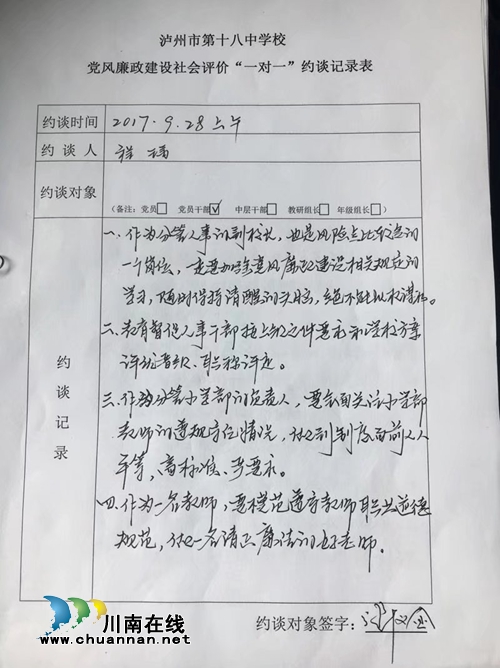 泸州市第十八中学校
党风廉政建设社会评价“一对一”约谈记录表
约谈时间 2017.9.28上午
约谈人
约谈对象
(备注：党员□ 党员干部☑ 中层干部□ 教研组长□ 年级组长□)
约谈记录
一、作为分管人事的副校长，也是风险点比较高的
一个岗位，要加强党风廉政建设相关规定的
学习，随时保持清醒的头脑，绝不能以权谋私。
二、教育督促人事干部按上级文件要求和学校方案
评级晋级、职称评定。
三、作为分管小学部的负责人，要全面关注小学部
教师的遵规守纪情况，做到制度面前人人
平等，高标准、严要求。
四、作为一名教师，要模范遵守教师职业道德
规范，做一名清正廉洁的好老师。
约谈对象签字：
川南在线
www.chuannan.net